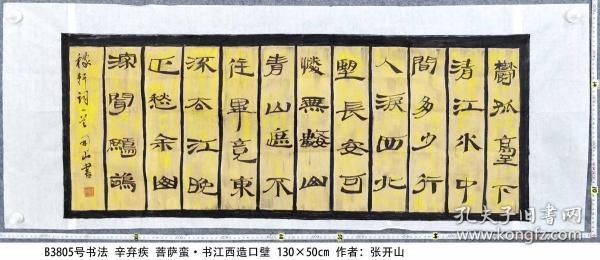 鬱孤臺下
清江水中
間多少行
人淚西北
望長安可
憐無數山
青山遮不
住畢竟東
流去江晚
正愁余山
深聞鷓鴣
稼軒詞一首 开山書
孔夫子旧书网
B3805号书法 辛弃疾 菩萨蛮·书江西造口壁 130×50㎝ 作者：张开山